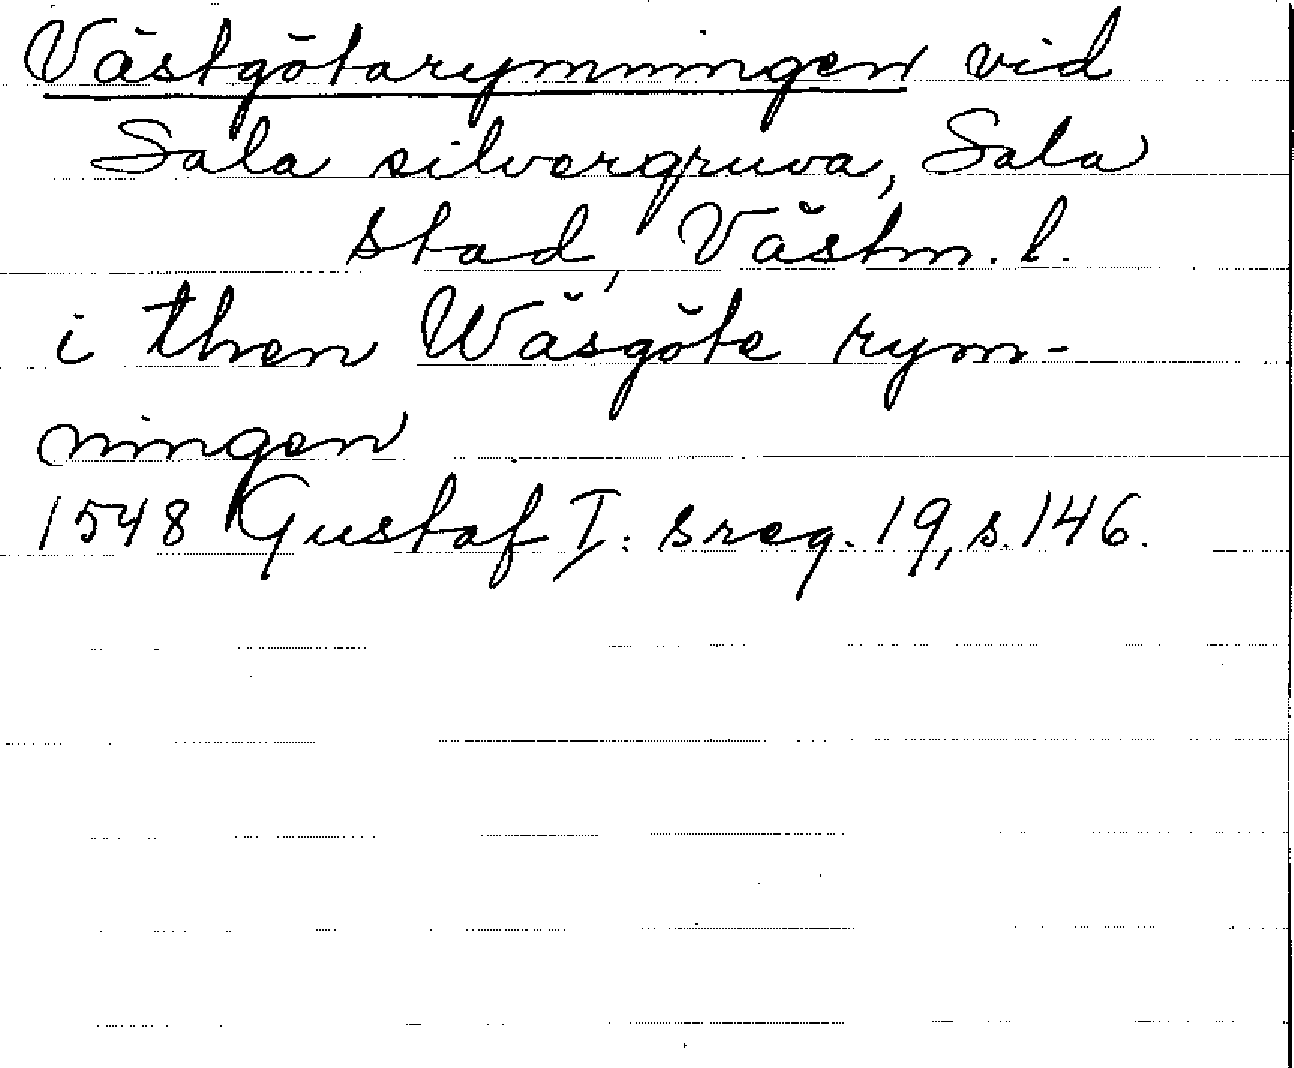 Västgötarymningen vid
Sala silvergruva, Sala
stad, Västm. l.
i then Wäsgöte rym-
ningen
1548 Gustaf I: s reg. 19, s. 146.